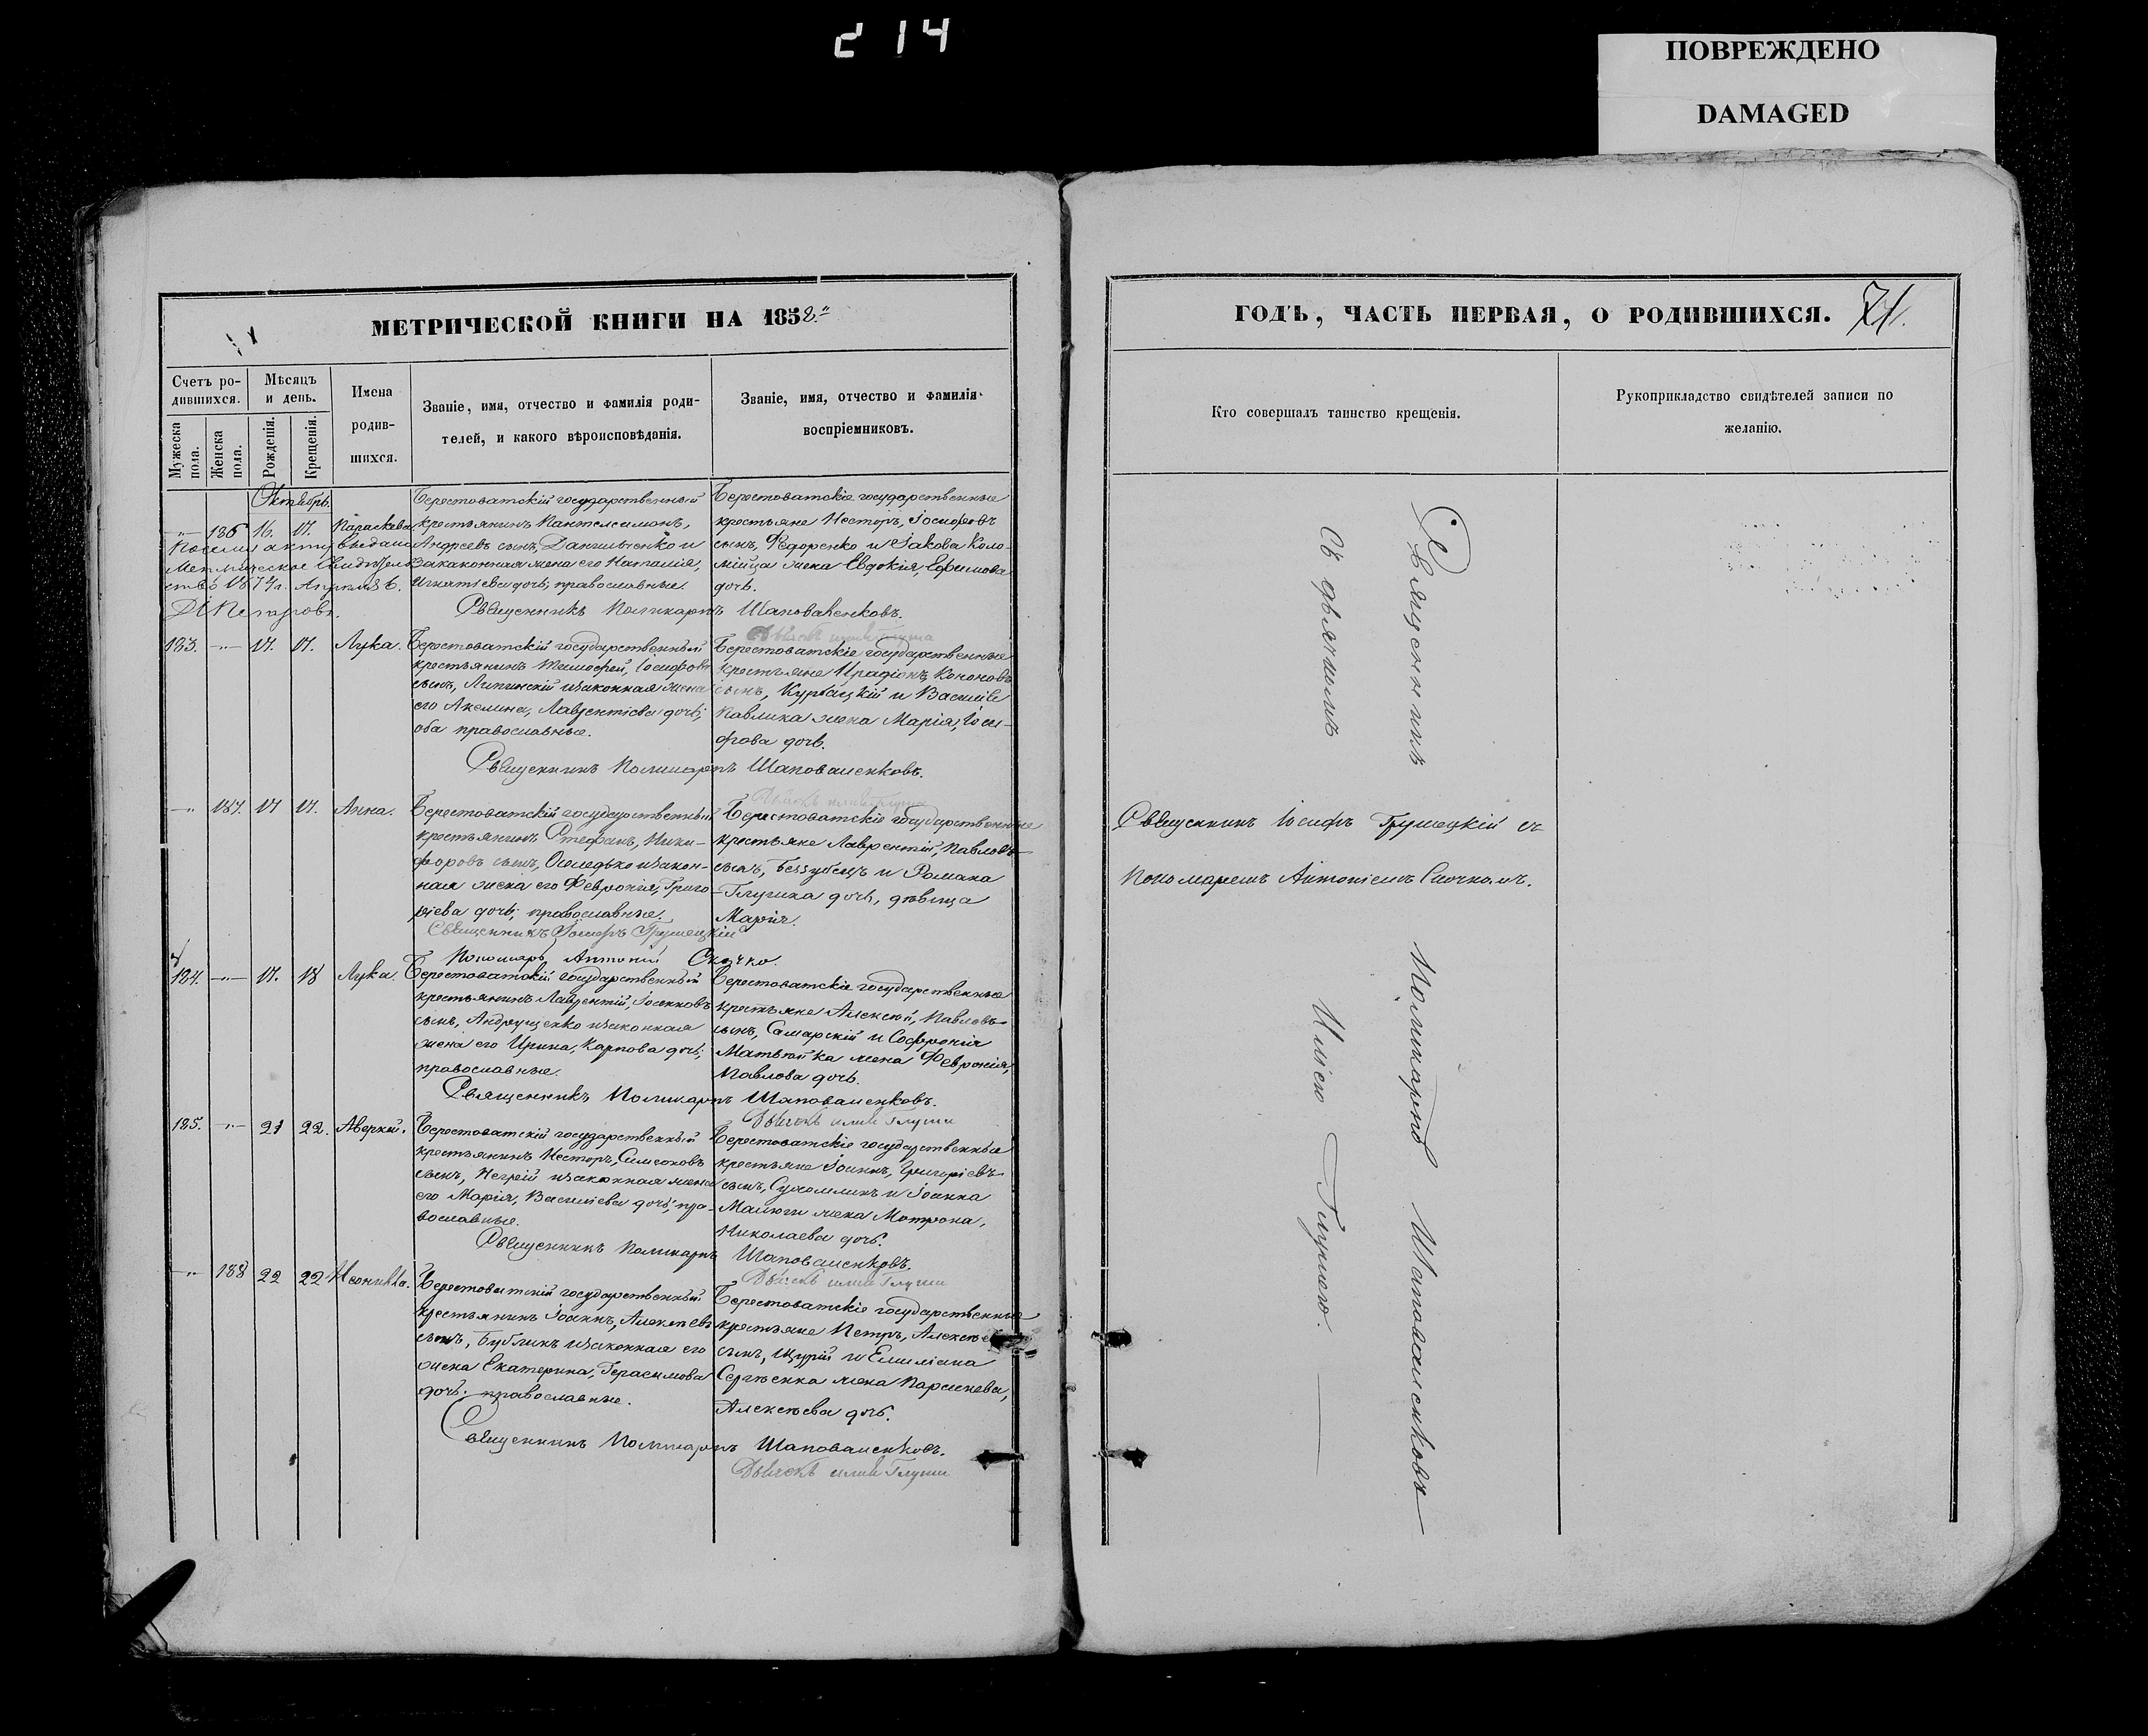 214
ПОВРЕЖДЕНО
DAMAGED
МЕТРИЧЕСКОЙ КНИГИ НА 1858.
Счетъ ро-
дившихся.
Мѣсяцъ
и день.
Имена
родив-
шихся.
Званіе, имя, отчество и фамилія роди-
телей, и какого вѣроисповѣданія.
Званіе, имя, отчество и фамилія
воспріемниковъ.
Мужеска
пола.
Женска
пола.
Рожденія.
Крещенія.
Октябрь.
186 16. 17. Параскева
Берестоватскій государственный
крестьянинъ Пантелеимонъ,
Андреевъ сынъ, Данильченко и
законная жена его Наталія,
Игнатіева дочь, православные.
Берестоватскіе государственные
крестьяне Несторъ, Іосифовъ
сынъ, Федоренко и Іакова Коло-
мійца жена Евдокія, Ефимова
дочь.
По сему акту выдано
Метрическое Свидѣтель-
ство 1874 г. Апреля 6.
Священникъ Поликарпъ Шаповаленковъ.
183. 17. 17. Лука.
Берестоватскій государственный
крестьянинъ Тимофей, Іосифовъ
сынъ, Липинскій и законная жена
его Акелина, Лаврентіева дочь;
оба православные.
Берестоватскіе государственные
крестьяне Иродіонъ, Кононовъ
сынъ, Курбацкій и Василія
Павлика жена Марія, Іоси-
фова дочь.
Священникъ Поликарпъ Шаповаленковъ.
187. 17 17. Анна.
Берестоватскій государственный
крестьянинъ Стефанъ, Ники-
форовъ сынъ, Оселедько и закон-
ная жена его Феврония, Григо-
ріева дочь; православные.
Берестоватскіе государственные
крестьяне Лаврентій, Павловъ
сынъ, Беззубецъ и Романа
дочь, дѣвица
Марія.
Священникъ Іосифъ Грушецкій
Пономарь Антоній Сночко.
184. 17. 18 Лука.
Берестоватскій государственный
крестьянинъ Лаврентій,
сынъ, Андрущенко и законная
жена его Ирина, Карпова дочь;
православные.
Берестоватскіе государственные
крестьяне Алексій, Павловъ
сынъ, Самарскій и Софронія
жена Феврония,
Павлова дочь.
Священникъ Поликарпъ Шаповаленковъ.
185. 21 22. Аверкій.
Берестоватскій государственный
крестьянинъ Несторъ, Симеоновъ
сынъ, Негрій и законная жена
его Марія, Василіева дочь; пра-
вославные.
Берестоватскіе государственные
крестьяне Іоаннъ, Григоріевъ
сынъ, Сухомлинъ и Іоанна
Малюги жена Мотрона,
Николаева дочь.
Священникъ Поликарпъ Шаповаленковъ.
188 22 22 Неонилла.
Берестоватскій государственный
крестьянинъ Іоаннъ, Алексѣевъ
сынъ, Бубликъ и законная его
жена Екатерина, Герасимова
дочь. православные.
Берестоватскіе государственные
крестьяне Петръ,
сынъ, Щурій и Емиліана
Сергѣенка жена Параскева,
Алексѣева дочь.
Священникъ Поликарпъ Шаповаленковъ.
ГОДЪ, ЧАСТЬ ПЕРВАЯ, О РОДИВШИХСЯ. 71.
Кто совершалъ таинство крещенія.
Рукоприкладство свидѣтелей записи по
желанію.
Священникъ Поликарпъ Шаповаленковъ
Съ дьячкомъ Иліею Глушею
Священникъ Іосифъ Грушецкій съ
пономаремъ Антоніемъ Сночкомъ.